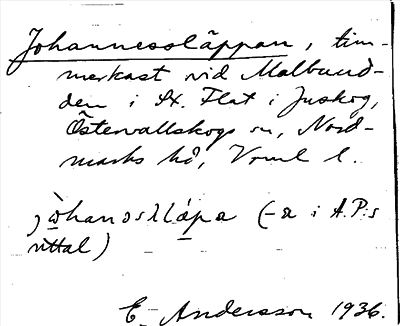 Johannessläppan, tim-
merkast vid Malbund-
den i St. Flat i Juskog,
Östervallskogs sn, Nord-
marks hd, Vrml l.
jòhanəsλápa (-a i A.P:s
uttal)
E. Andersson 1936.